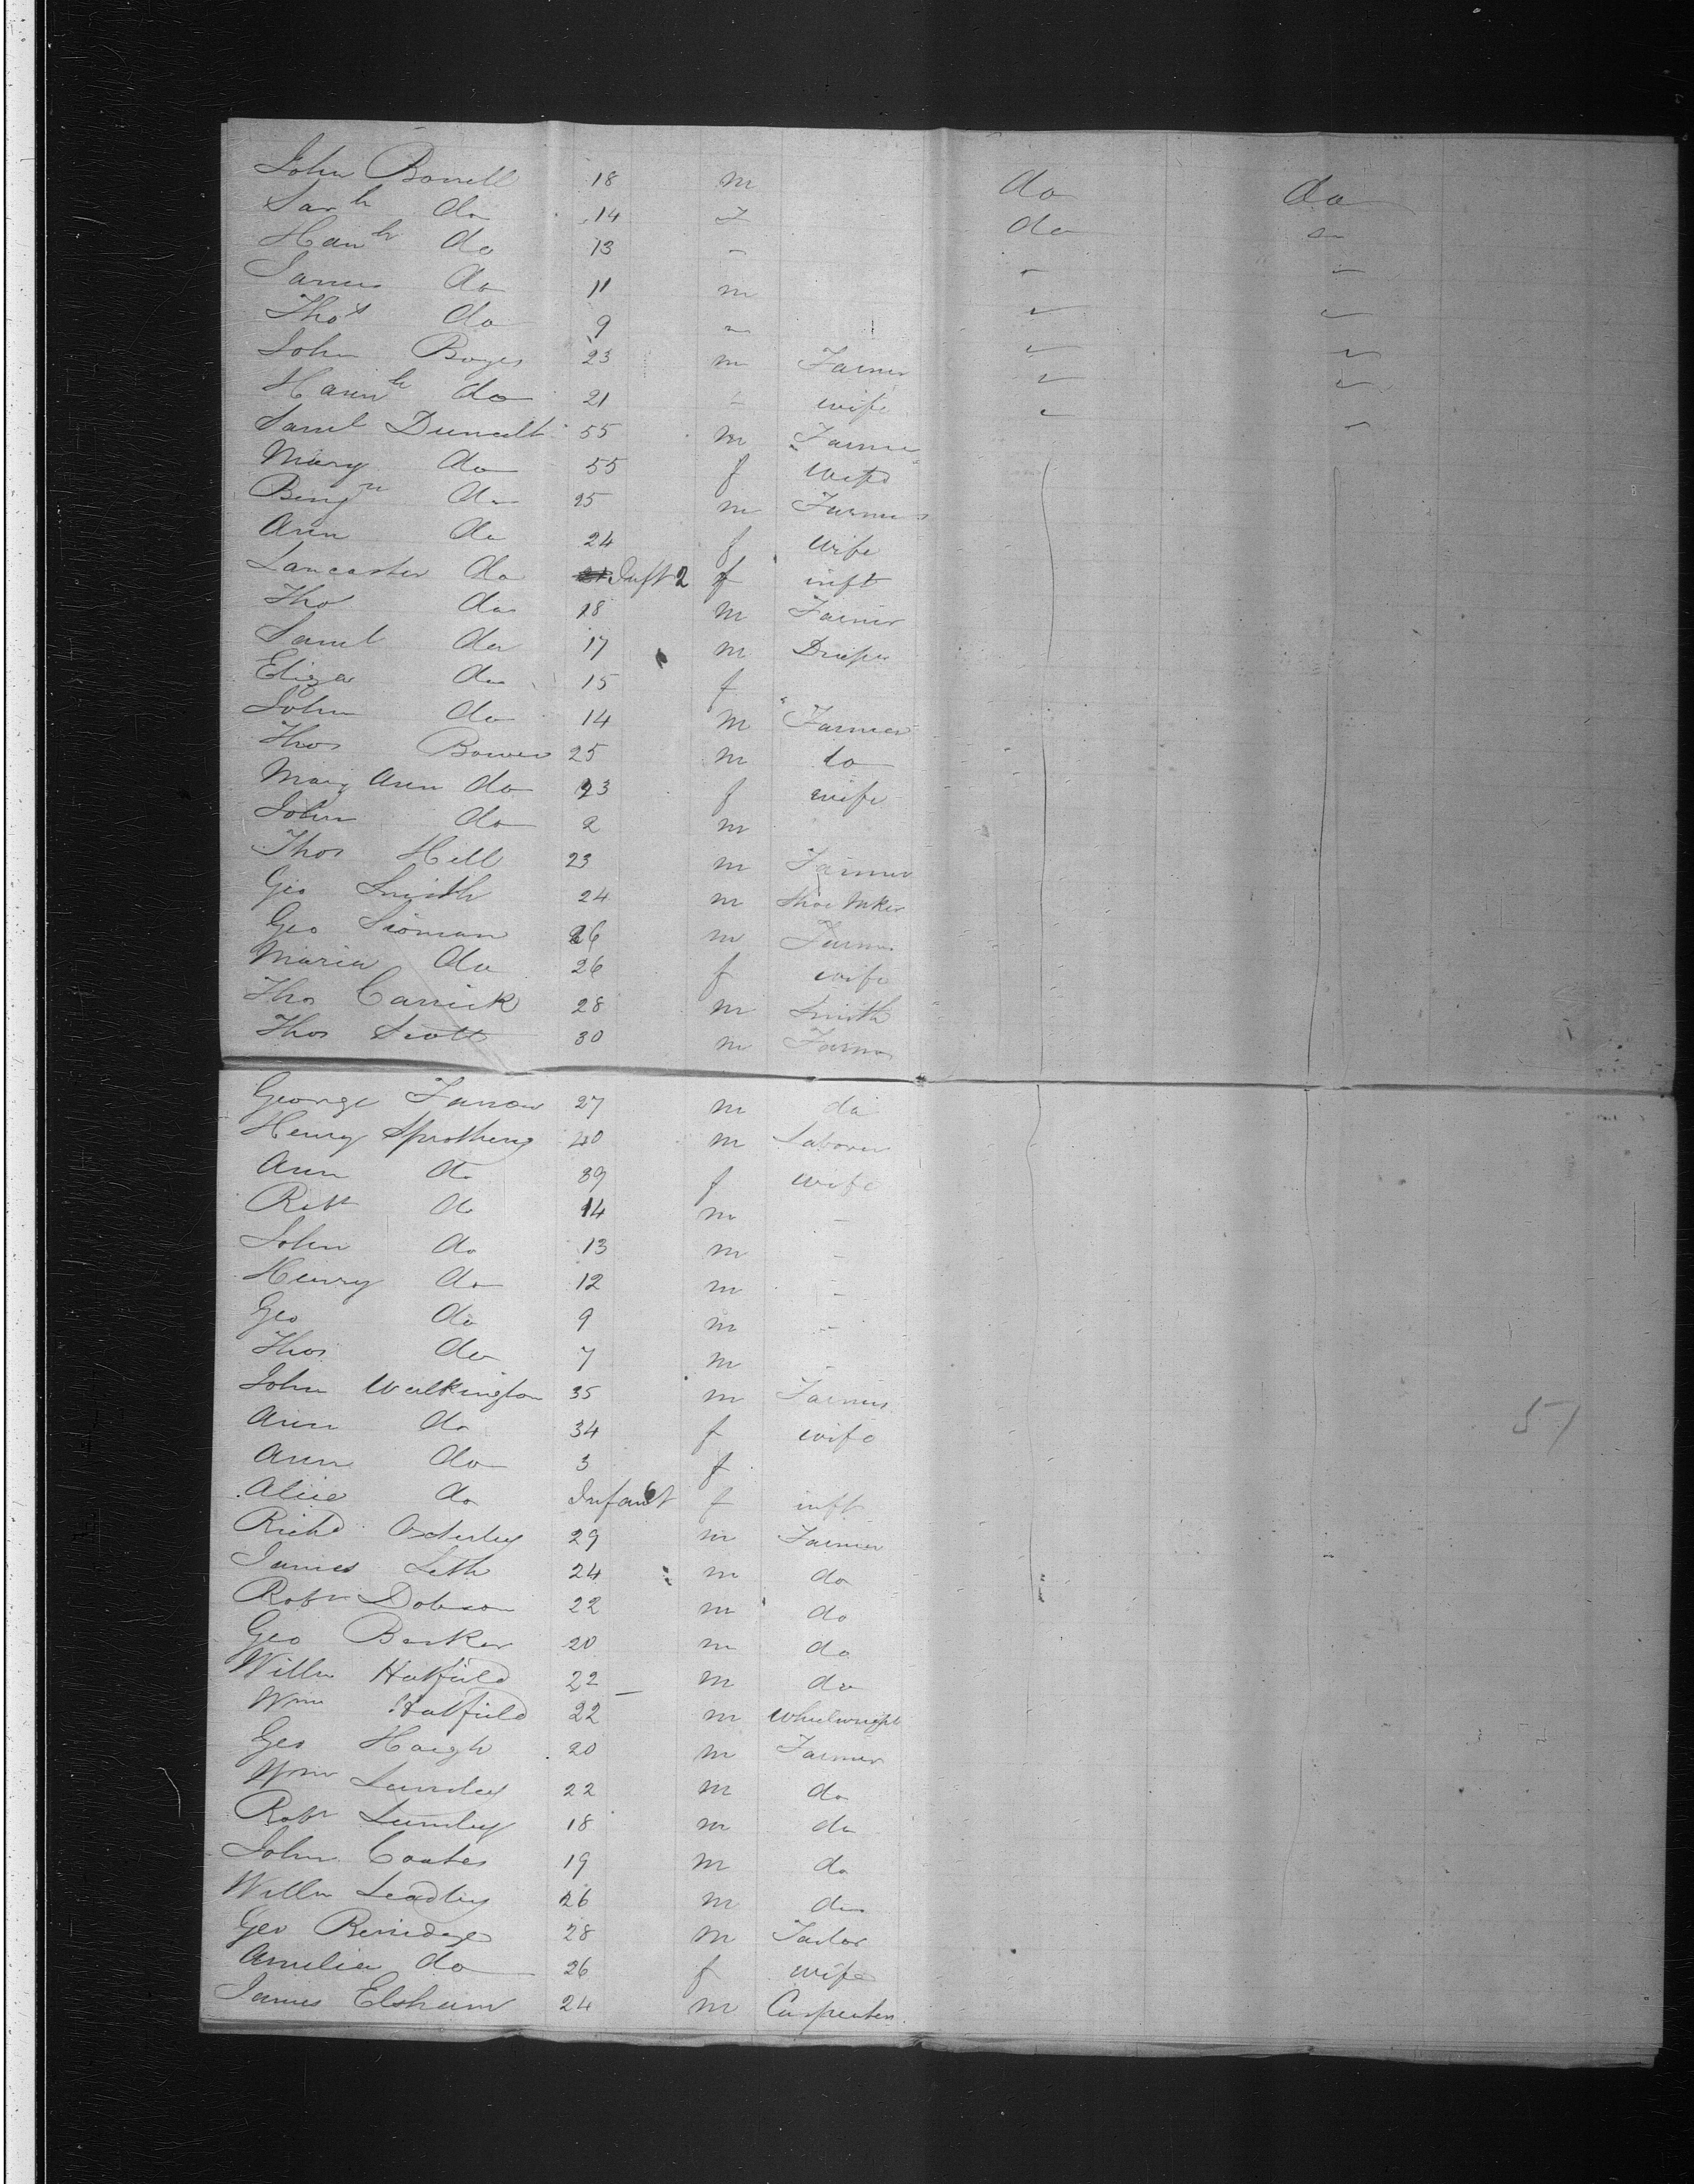 John Borrell 18 m do do
Sarh do 14 f do
Hanh do 13
James do 11 m
Thos do 9
John Boyes 23 m Farmer
Hannh do 21 wife
Saml 55 m Farmer
Mary do 55 f wife
Benjn do 25 m Farmer
Ann do 24 f wife
Lancaster do Inft 2 f inft
Tho do 18 m Farmer
Saml do 17 m Draper
Eliza do 15 f
John do 14 m Farmer
Thos Bower 25 m do
Mary Ann do 23 f wife
John do 2 m
Thos Hill 23 m Farmer
Geo Smith 24 m Shoe Mker
Geo 26 m Farmer
Maria do 26 f wife
Thos Carrick 28 m Smith
Thos Scott 30 m Farmer
George Farrow 27 m do
Henry 40 m Laborer
Ann do 39 f wife
Robt do 14 m -
John do 13 m -
Henry do 12 m -
Geo do 9 m -
Thos do 7 m -
John Walkington 35 m Farmer
Ann do 34 f wife
Ann do 3 f
Alice do Infant 6 f inft
Richd 29 m Farmer
James Leth 24 m do
Robt Dobson 22 m do
Geo Barker 20 m do
Willm Hatfield 22 m do
Wm Hatfield 22 m Wheelwright
Geo Haigh 20 m Farmer
Wm Lumley 22 m do
Robt Lumley 18 m do
John Coates 19 m do
Willm Leadley 26 m do
Geo 28 m Tailor
Amelia do 26 f wife
James Elsham 24 m Carpenter